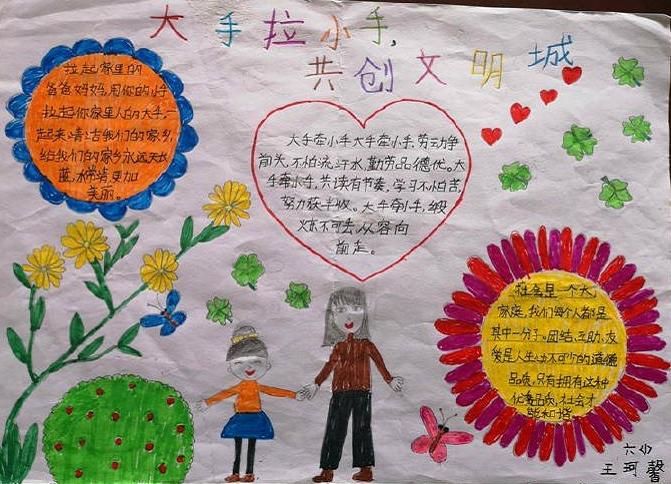 大手拉小手,
共创文明城
拉起家里的
爸爸妈妈,用你的小手
拉起你家里人的大手,一
起来清洁我们的家乡,
给我们的家乡永远天长
蓝,水常清,更加
美丽。
大手牵小手大手牵小手,劳动争
前头,不怕流汗水,勤劳品德优。大
手牵小手,共读有节奏,学习不怕苦,
努力获丰收。大手牵小手,
火不可丢,从容向
前走。
社会是一个大
家庭,我们每个人都是
其中一分子。团结、互助、友
爱是人生中不可少的道德
品质,只有拥有这种
优秀品质,社会才
能和谐。
六(1)
王珂馨